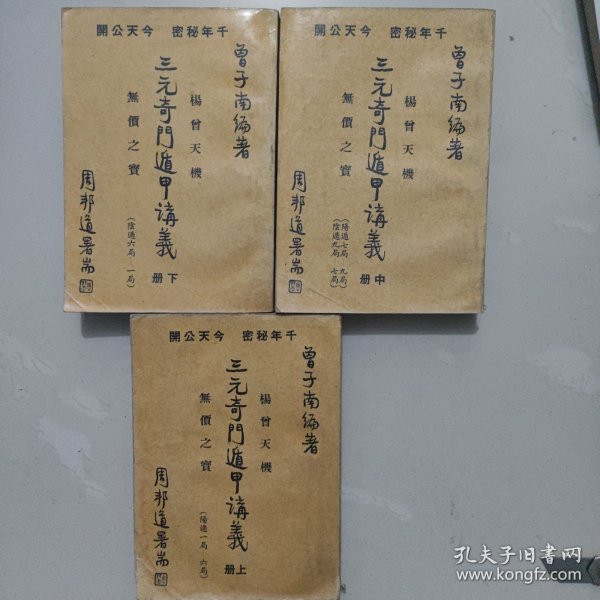 千年秘密 今天公開
曾子南編著
楊曾天機
三元奇門遁甲講義
下册
無價之寶
(陰遁六局 一局)
周邦道署耑
千年秘密 今天公開
曾子南編著
楊曾天機
三元奇門遁甲講義
中册
無價之寶
(陽遁七局 九局)
(陰遁九局 七局)
周邦道署耑
千年秘密 今天公開
曾子南編著
楊曾天機
三元奇門遁甲講義
上册
無價之寶
(陽遁一局 六局)
周邦道署耑
孔夫子旧书网
www.kongfz.com